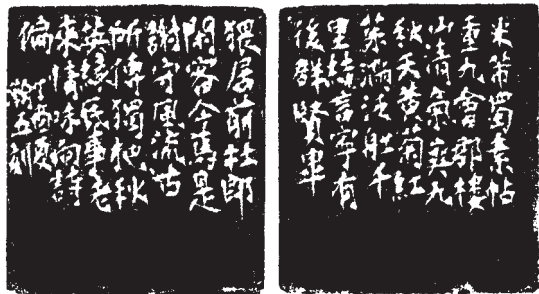 米芾蜀素帖
重九會郢樓
山清氣爽九
秋天黃菊紅
茱滿泛船千
里結言寧有
後群賢畢
猥居前杜郎
閑客今焉是
謝守風流古
所傳獨把秋
英緣底事老
來情味向詩
偏
酉夏
五刻